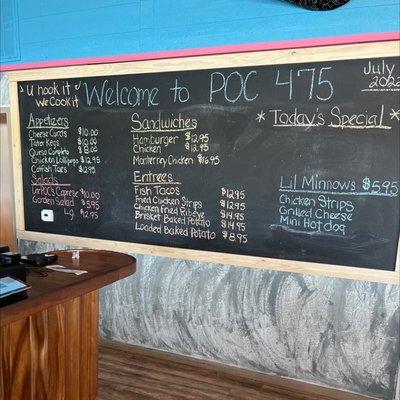 U hook it
we Cook it
Welcome to POC 475
July
2022
Appetizers
Cheese Curds $10.00
Tater Kegs $10.00
Queso Completo $8.00
Chicken Lollipops $12.95
Catfish Tairs $12.95
Salads
LarPOC's Caprese $10.00
Garden Salad $5.95
Lg $12.95
Sandwiches
Hamburger $12.95
Chicken $12.95
Monterrey Chicken $16.95
Entrees
Fish Tacos $12.95
Fried Chicken Strips $12.95
Chicken Fried Ribeye $14.95
Brisket Baked Potato $14.95
Loaded Baked Potato $8.95
* Today's Special *
Lil Minnows $5.95
Chicken Strips
Grilled Cheese
Mini Hot dog